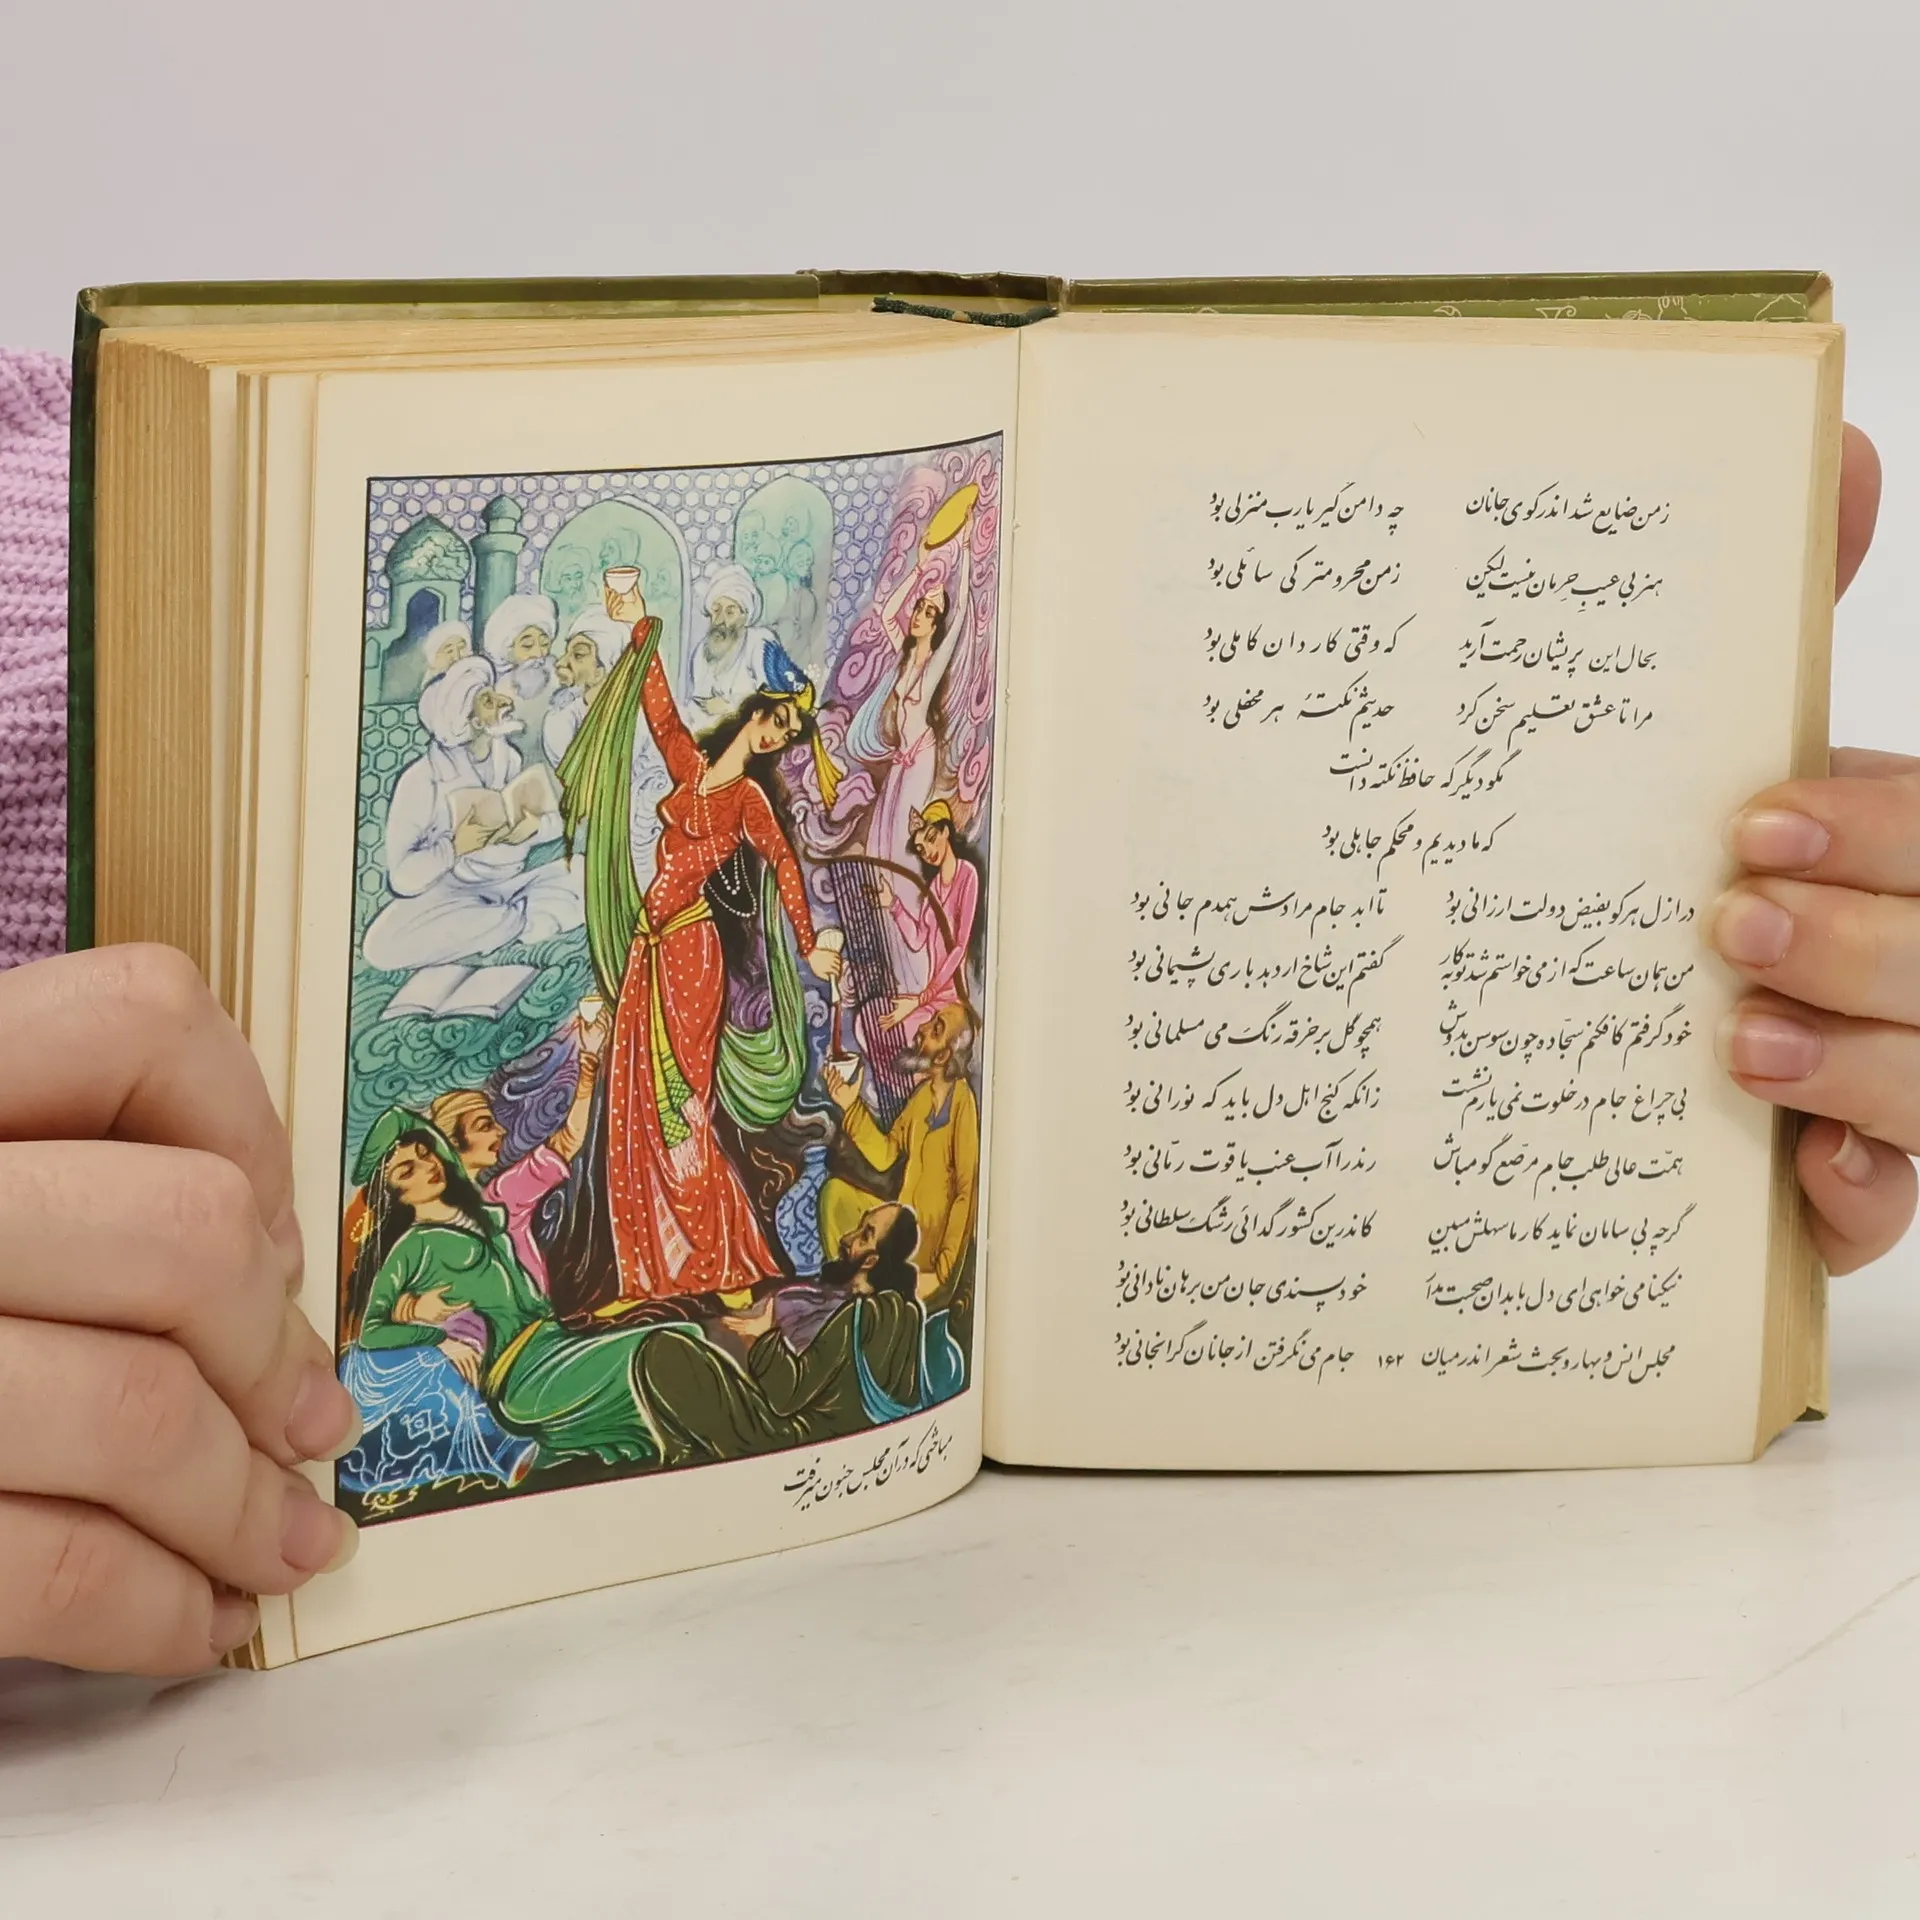 زمن ضایع شد اندر کوی جانان چه دامن گیر یارب منزلی بود
هنر بی عیب حِرمان نیست لیکن زمن محرومتر کی سائلی بود
بحال این پریشان رحمت آرید که وقتی کاردان کاملی بود
مرا تا عشق تعلیم سخن کرد حدیثم نکتهٔ هر محفلی بود
مگو دیگر که حافظ نکته دانست
که ما دیدیم و محکم جاهلی بود
در ازل هر کو بفیض دولت ارزانی بود تا ابد جام مرادش همدم جانی بود
من همان ساعت که از می خواستم شد توبه کار گفتم این شاخ ار دهد باری پشیمانی بود
خود گرفتم کافکنم سجّاده چون سوسن بدوش همچو گل بر خرقه رنگ می مسلمانی بود
بی چراغ جام در خلوت نمی یارم نشست زانکه کنج اهل دل باید که نورانی بود
همّت عالی طلب جام مرصّع گو مباش رند را آب عنب یاقوت رمّانی بود
گرچه بی سامان نماید کار ما سهلش مبین کاندرین کشور گدائی رشک سلطانی بود
نیکنامی خواهی ای دل با بدان صحبت مدار خود پسندی جان من برهان نادانی بود
مجلس انس و بهار و بحث شعر اندر میان ۱۶۲ جام می نگرفتن از جانان گرانجانی بود
که در آن مجلس جنون میرفت